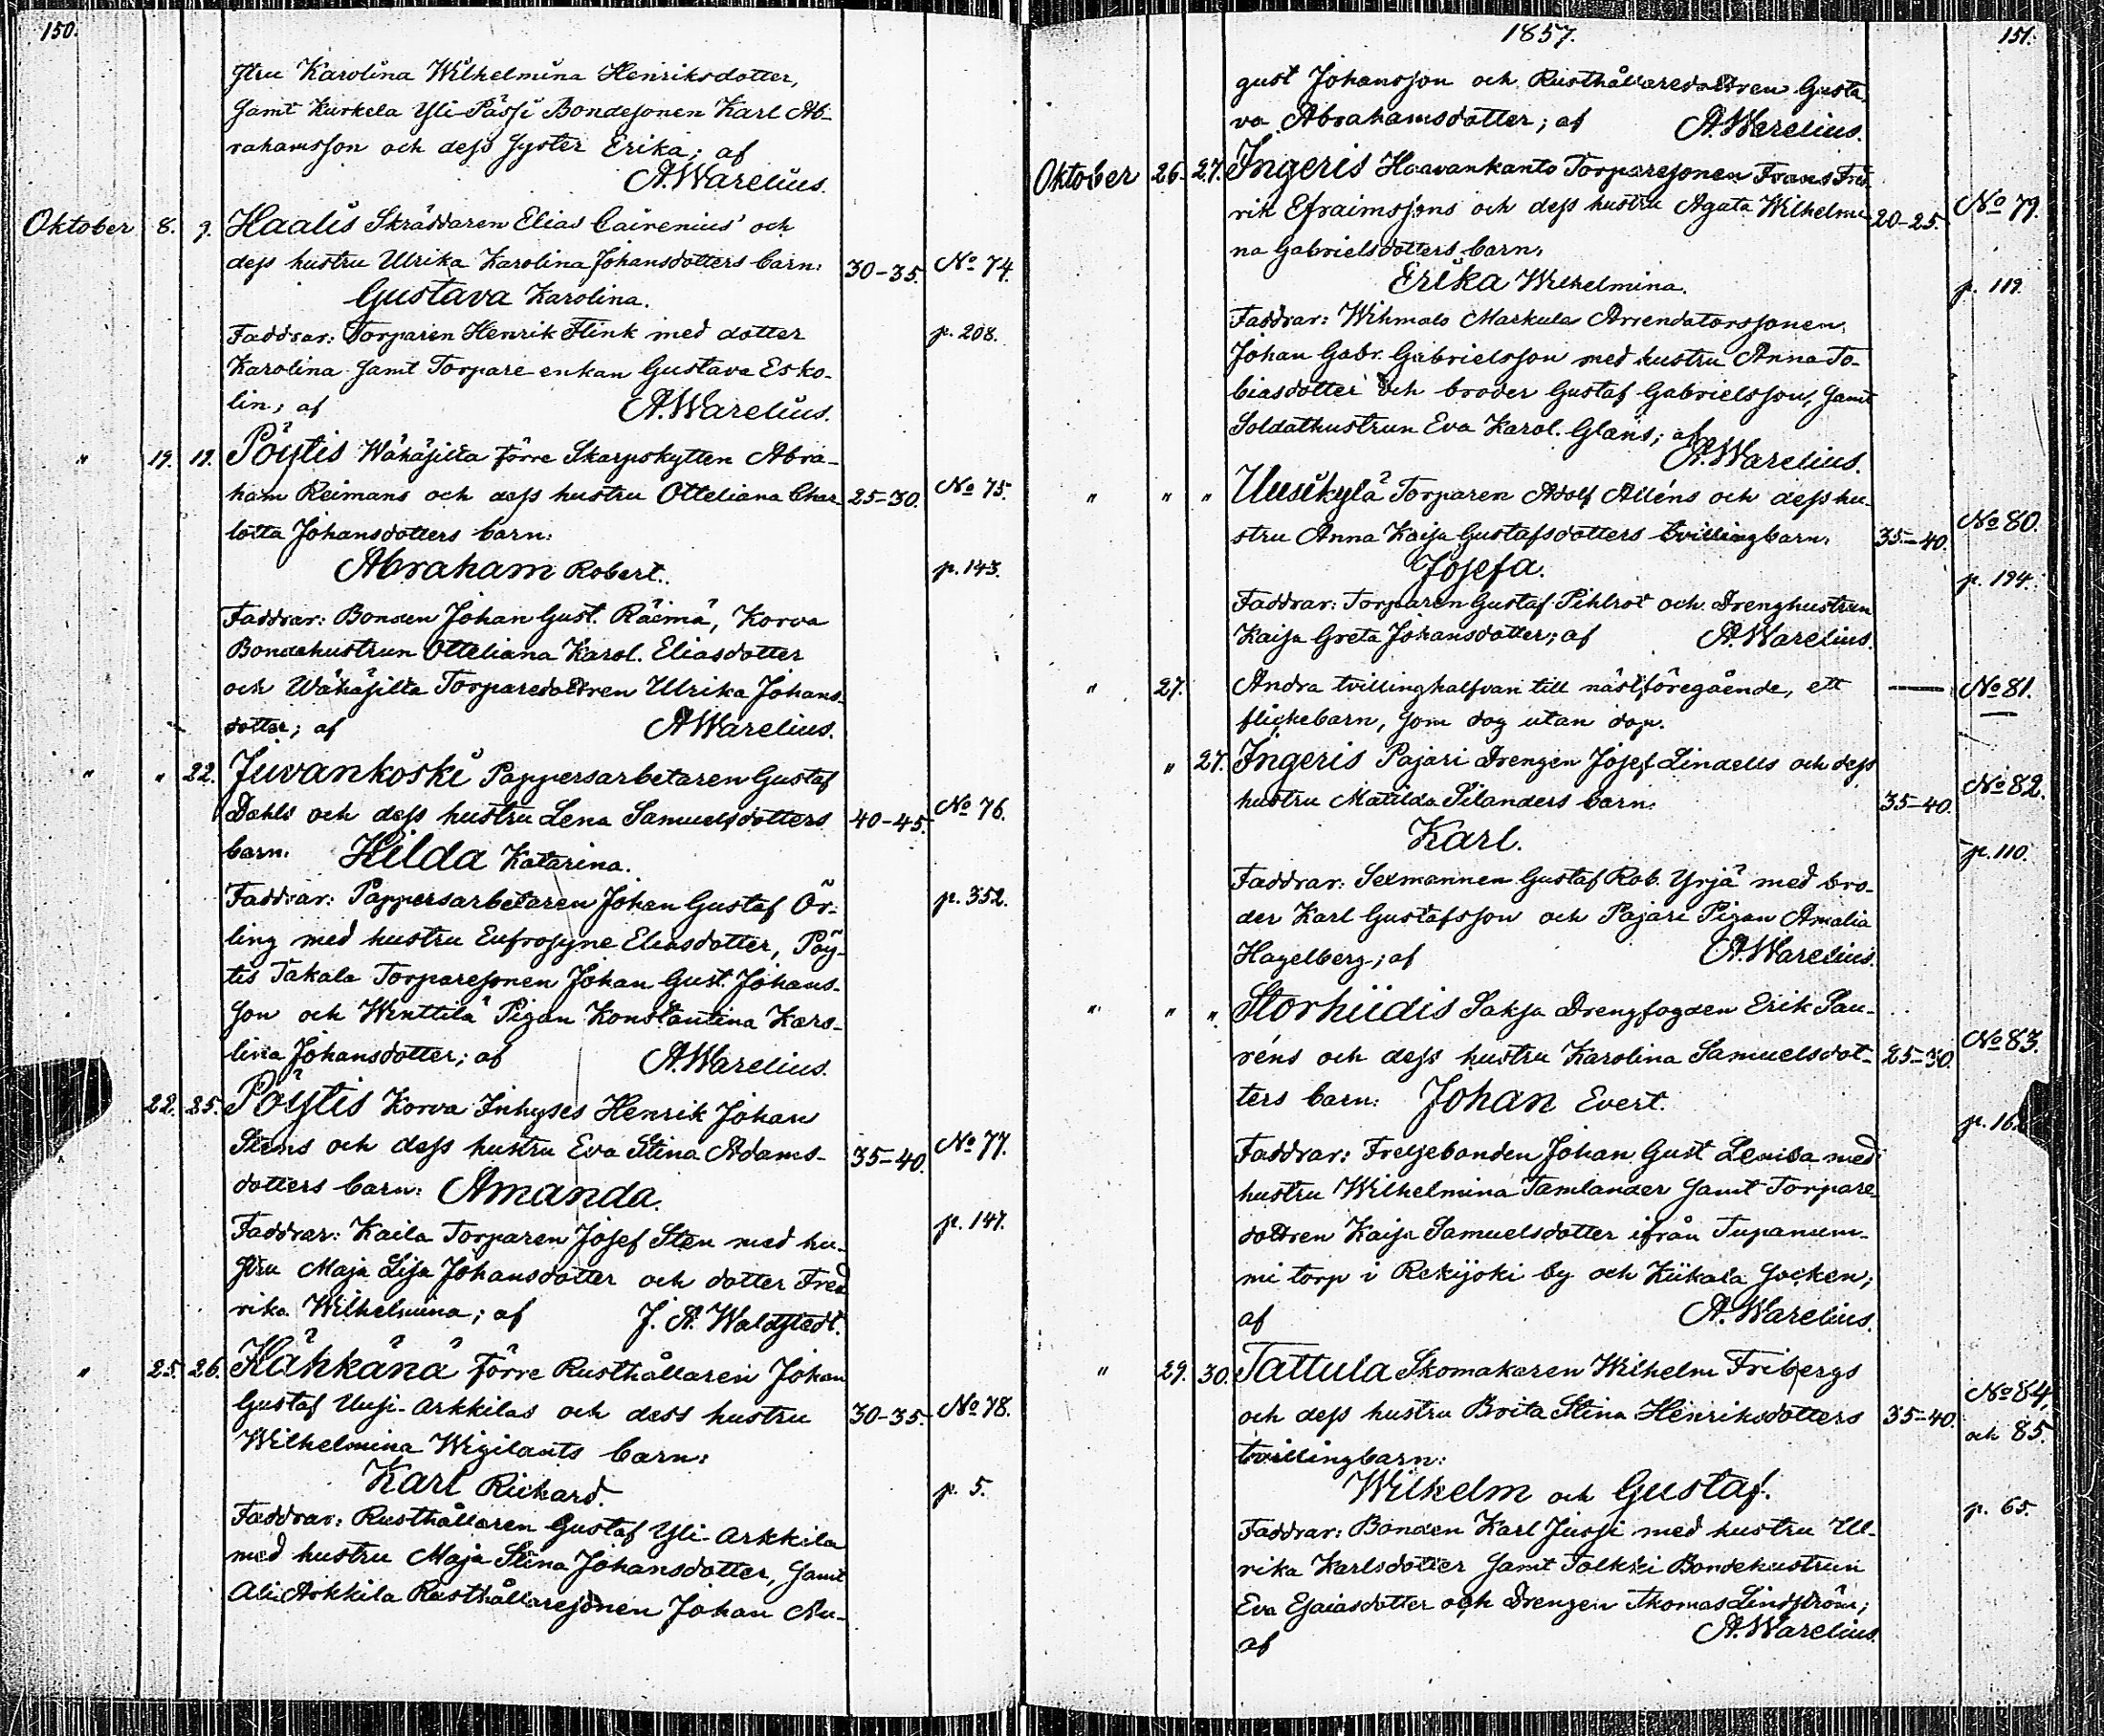 150.
stru Karolina Wilhelmina Henriksdotter,
samt Kurkela Yli-Pässi Bondesonen Karl Ab-
rahamsson och dess syster Erika; af
A. Warelius.
Oktober 8. 9. Haalis Skräddaren Elias Cairenius' och
dess hustru Ulrika Karolina Johansdotters barn: 30-35. No 74.
Gustava Karolina.
Faddrar: Torparen Henrik Flink med dotter p. 208.
Karolina samt Torpare-enkan Gustava Esko-
lin; af A. Warelius.
" 19. 19. Pöytis Wähäsilta förre Skarpskytten Abra-
ham Reimans och dess hustru Otteliana Char- 25-30. No 75.
lotta Johansdotters barn:
Abraham Robert. p. 143.
Faddrar: Bonden Johan Gust. Räimä, Korva
Bondehustrun Otteliana Karol. Eliasdotter
och Wähäsilta Torparedottren Ulrika Johans-
dotter; af A. Warelius.
" " 22. Juvankoski Pappersarbetaren Gustaf
Dahls och dess hustru Lena Samuelsdotters 40-45. No 76.
barn: Hilda Katarina.
Faddrar: Pappersarbetaren Johan Gustaf Ör- p. 352.
ling med hustru Eufrosyne Eliasdotter, Pöy-
tis Takala Torparesonen Johan Gust. Johans-
son och Winttilä Pigan Konstantina Karo-
lina Johansdotter; af A. Warelius.
22. 25. Pöytis Korva Inhyses Henrik Johan
Stens och dess hustru Eva Stina Adams- 35-40. No 77.
dotters barn: Amanda.
Faddrar: Kaila Torparen Josef Sten med hu- p. 147.
stru Maja Lisa Johansdotter och dotter Fred
rika Wilhelmina; af J. A. Waldstedt.
" 25. 26. Kähkänä förre Rusthållaren Johan
Gustaf Uusi-Arkkilas och dess hustru 30-35. No 78.
Wilhelmina Wigilants barn:
Karl Richard. p. 5.
Faddrar: Rusthållaren Gustaf Yli-Arkkila
med hustru Maja Stina Johansdotter, samt
Ali-Arkkila Rusthållaresonen Johan Au-
1857. 151.
gust Johansson och Rusthållaredottren Gusta
va Abrahamsdotter; af A. Warelius.
Oktober 26. 27. Ingeris Haavankanto Torparesonen Frans Fred
rik Efraimssons och dess hustru Agata Wilhelmi 20-25. No 79.
na Gabrielsdotters barn:
Erika Wilhelmina. p. 119.
Faddrar: Wihmalo Markula Arrendatorssonen
Johan Gabr. Gabrielsson med hustru Anna To-
biasdotter och broder Gustaf Gabrielsson, samt
Soldathustrun Eva Karol. Glans; af
A. Warelius.
" " " Uusikylä Torparen Adolf Alléns och dess hu-
stru Anna Kaisa Gustafsdotters tvillingbarn: 35-40. No 80.
Josefa. p. 194.
Faddrar: Torparen Gustaf Pihlrot och Drenghustrun
Kaisa Greta Johansdotter; af A. Warelius.
" 27. Andra tvillinghalfvan till nästföregående, ett — No 81.
flickebarn, som dog utan dop. —
" 27. Ingeris Pajari Drengen Josef Lindells och dess
hustru Matilda Silanders barn: 35-40. No 82.
Karl. p. 110.
Faddrar: Sexmannen Gustaf Rob. Yrjä med bro-
der Karl Gustafsson och Pajari Pigan Amalia
Hagelberg; af A. Warelius.
" " " Storhiidis Saksa Drengfogden Erik Sau-
réns och dess hustru Karolina Samuelsdot- 25-30. No 83.
ters barn: Johan Evert. p. 16
Faddrar: Frelsebonden Johan Gust Lenisa med
hustru Wilhelmina Tamlander samt Torpare
dottren Kaisa Samuelsdotter ifrån Tupanum-
mi torp i Rekijoki by och Kiikala Socken;
af A. Warelius.
" 29. 30. Tattula Skomakaren Wilhelm Fribergs
och dess hustru Brita Stina Henriksdotters 35-40. No 84,
och 85.
tvillingbarn:
Wilhelm och Gustaf. p. 65.
Faddrar: Bonden Karl Jussi med hustru Ul-
rika Karlsdotter samt Tolkki Bondehustrun
Eva Esaiasdotter och Drengen Thomas Lindström;
af A. Warelius.